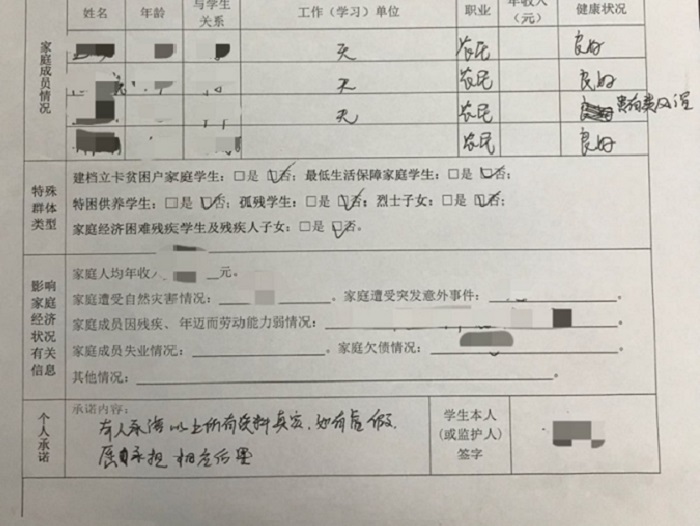 姓名 年龄 与学生关系 工作（学习）单位 职业 年收入（元） 健康状况
家庭成员情况
无 农民 良好
无 农民 良好
无 农民 患有类风湿
农民 良好
特殊群体类型
建档立卡贫困户家庭学生：□是 □否；最低生活保障家庭学生：□是 □否；
特困供养学生：□是 □否；孤残学生：□是 □否；烈士子女：□是 □否；
家庭经济困难残疾学生及残疾人子女：□是 □否。
影响家庭经济状况有关信息
家庭人均年收入 元。
家庭遭受自然灾害情况： 。家庭遭受突发意外事件： 。
家庭成员因残疾、年迈而劳动能力弱情况： 。
家庭成员失业情况： 。家庭欠债情况： 。
其他情况： 。
个人承诺
承诺内容：
本人承诺以上所有资料真实，如有虚假
愿承担相应后果
学生本人
(或监护人)
签字